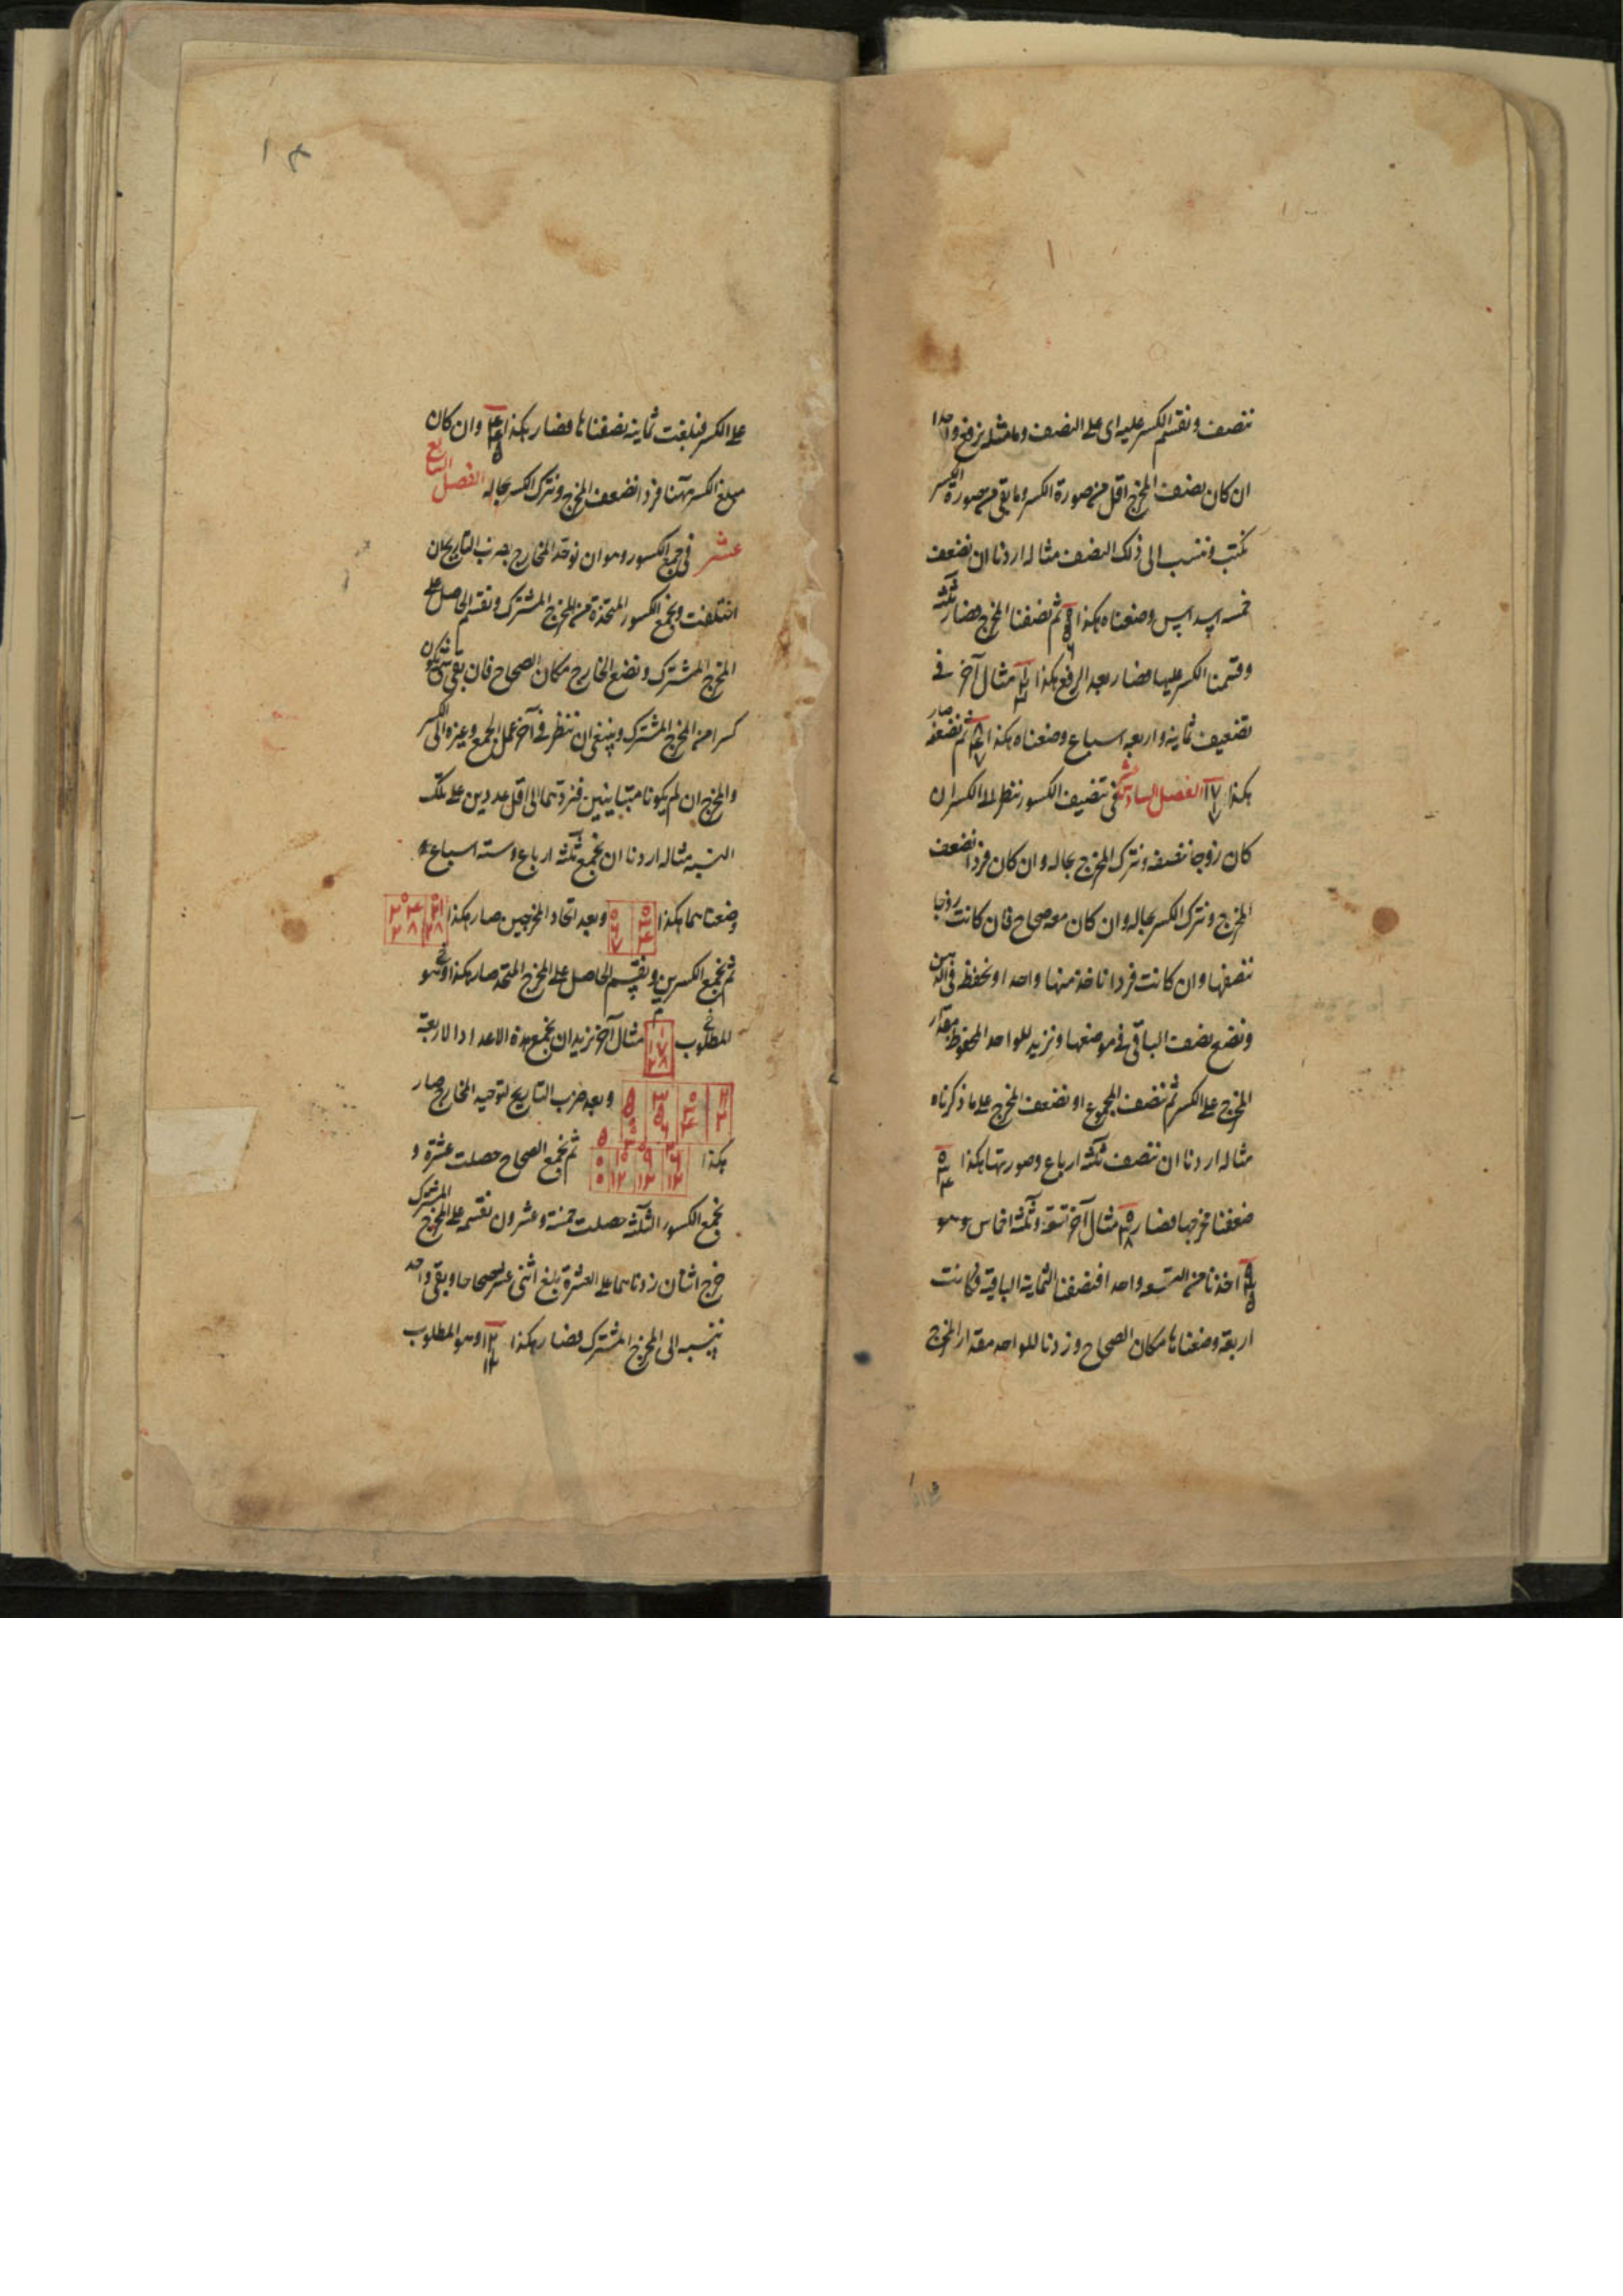 ننصف ونقسم الكسر عليه اى على النصف وما مثله نرفع واحدا
ان كان نصف المخرج اقل من صورة الكسر وما بقى من صورة الكسر
نكتب وننسب الى ذلك النصف مثاله اردنا ان نضعف
خمسة اسداس وضعناه هكذا ٥ ٦ ثم نصفنا المخرج فصار ثلثة
وقسمنا الكسر عليها فصار بعد الرفع هكذا ١ ٢ ٣ مثال آخر فى
تضعيف ثمانية واربعة اسباع وضعناه هكذا ٨ ٤ ٧ ثم نضعفه صار
هكذا ١٧ ١ ٧ الفصل السادس عشر فى تنصيف الكسور ننظر الى الكسر ان
كان زوجا ننصفه ونترك المخرج بحاله وان كان فردا نضعف
المخرج ونترك الكسر بحاله وان كان معه صحاح فان كانت زوجا
ننصفها وان كانت فردا ناخذ منها واحدا ونحفظ فى الذهن
ونضع نصف الباقى فى موضعها ونزيد للواحد المحفوظ مقدار
المخرج على الكسر ثم ننصف المجموع او نضعف المخرج على ما ذكرناه
مثاله اردنا ان ننصف ثلثة ارباع وصورتها هكذا ٠ ٣ ٤
ضعفنا مخرجها فصار ٠ ٣ ٨ مثال آخر تسعة وثلثة اخماس وهو
٩ ٣ ٥ اخذنا من التسعة واحدا فنصفنا الثمانية الباقية فكانت
اربعة وضعناها مكان الصحاح وزدنا للواحد مقدار المخرج
١٨
على الكسر فبلغت ثمانية نصفناها فصار هكذا ٤ ٤ ٥ وان كان
مبلغ الكسر ههنا فردا نضعف المخرج ونترك الكسر بحاله الفصل السابع
عشر فى جمع الكسور وهو ان نوحد المخارج بضرب التاريخ ان
اختلفت ونجمع الكسور المتخذة من المخرج المشترك ونقسم الحاصل على
المخرج المشترك ونضع الخارج مكان الصحاح فان بقى شئ يكون
كسرا من المخرج المشترك وينبغى ان ننظر فى آخر عمل الجمع وغيره الى الكسر
والمخرج ان لم يكونا متباينين فنردهما الى اقل عددين على تلك
النسبة مثاله اردنا ان نجمع ثلثة ارباع وستة اسباع
وضعناهما هكذا ٠ ٣ ٤ ٠ ٦ ٧ وبعد اتحاد المخرجين صار هكذا ٠ ٢١ ٢٨ ٠ ٢٤ ٢٨
ثم نجمع الكسرين ونقسم الحاصل على المخرج المتحد صار هكذا وهو
المطلوب ١ ١٧ ٢٨ مثال آخر نريد ان نجمع هذه الاعداد الاربعة
وبعد ضرب التاريخ لتوحيد المخارج صار
هكذا ثم نجمع الصحاح حصلت عشرة و
نجمع الكسور الثلثة حصلت خمسة وعشرون نقسمه على المخرج المشترك
خرج اثنان زدناهما على العشرة بلغ اثنى عشر صحاحا وبقى واحد
ننسبه الى المخرج المشترك فصار هكذا ١٢ ١ ١٢ وهو المطلوب